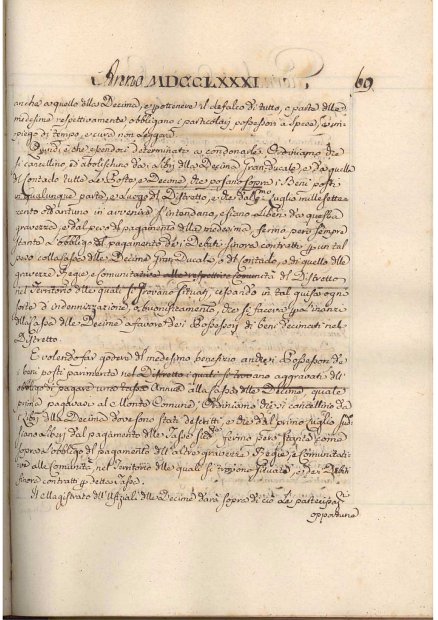 Anno MDCCLXXXI 69
anche a quello della Decima, e p ottenere il defalco di tutto, o parte delle
medesime respettivamente obbligano i particolari possessori a spese, im-
piego di tempo, e cure non leggiere.
Quindi è che essendoci determinati a condonarle Ordiniamo che
si cancellino, ed aboliscano dai libri della Decima Granducale, e da quella
di Contado tutte le Poste, e Decime che posano sopra i Beni posti
in qualunque parte, e luogo del Distretto, e che dal p.mo Luglio mille sette-
cento ottantuno in avvenire s'intendano, e siano liberi da questa
gravezza, e dal peso del pagamento della medesima, fermo però sempre
stante l'obbligo del pagamento dei Debiti sinora contratti p un tal
peso colla Cassa delle Decime Granducale, o del Contado, e di quello delle
gravezze Regie, e comunitative alle respettive Comunità del Distretto
nel Territorio delle quali si trovano situati, cessando in tal guisa ogni
sorte d'indennizzazione, o buonificamento, che si faceva p l'innanzi
dalla Cassa delle Decime a favore dei Possessori di beni decimati nel
Distretto.
E volendo far godere del medesimo benefizio anche i Possessori de'
beni posti parimente nel Distretto i quali si trovano aggravati dell'
obbligo di pagare una tassa annua alla Cassa delle Decime, quale
prima pagavasi al Monte Comune, Ordiniamo che si cancellino da
Libri della Decima dove sono stati descritti, e che dal primo Luglio sud.
siano liberi dal pagamento delle tasse sud.e fermo però stante come
sopra l'obbligo del pagamento dell'altre gravezze Regie, e Comunitati-
ve alle Comunità, nel Territorio delle quali si trovano situati, e dei Debiti
sinora contratti p detta Tassa.
Il Magistrato dell'Ufiziali delle Decime darà sopra di ciò le partecipaz.ni
opportune